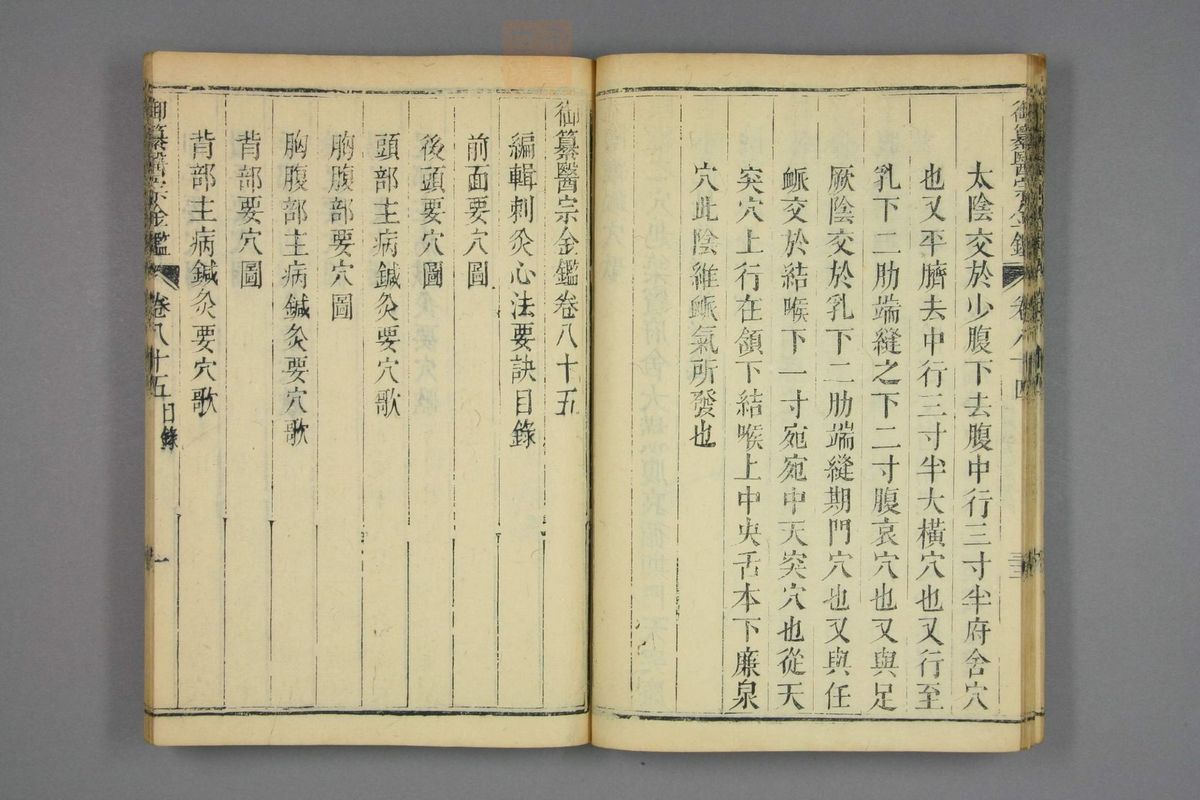 太陰交於少腹下去腹中行三寸半府舍穴
也又平臍去中行三寸半大橫穴也又行至
乳下二肋端縫之下二寸腹哀穴也又與足
厥陰交於乳下二肋端縫期門穴也又與任
脈交於結喉下一寸宛宛中天突穴也從天
突穴上行在頷下結喉上中央舌本下廉泉
穴此陰維脈氣所發也
御纂醫宗金鑑卷八十五
編輯刺灸心法要訣目錄
前面要穴圖
後頭要穴圖
頭部主病鍼灸要穴歌
胸腹部要穴圖
胸腹部主病鍼灸要穴歌
背部要穴圖
背部主病鍼灸要穴歌
御纂醫宗金鑑 卷八十五目錄 一